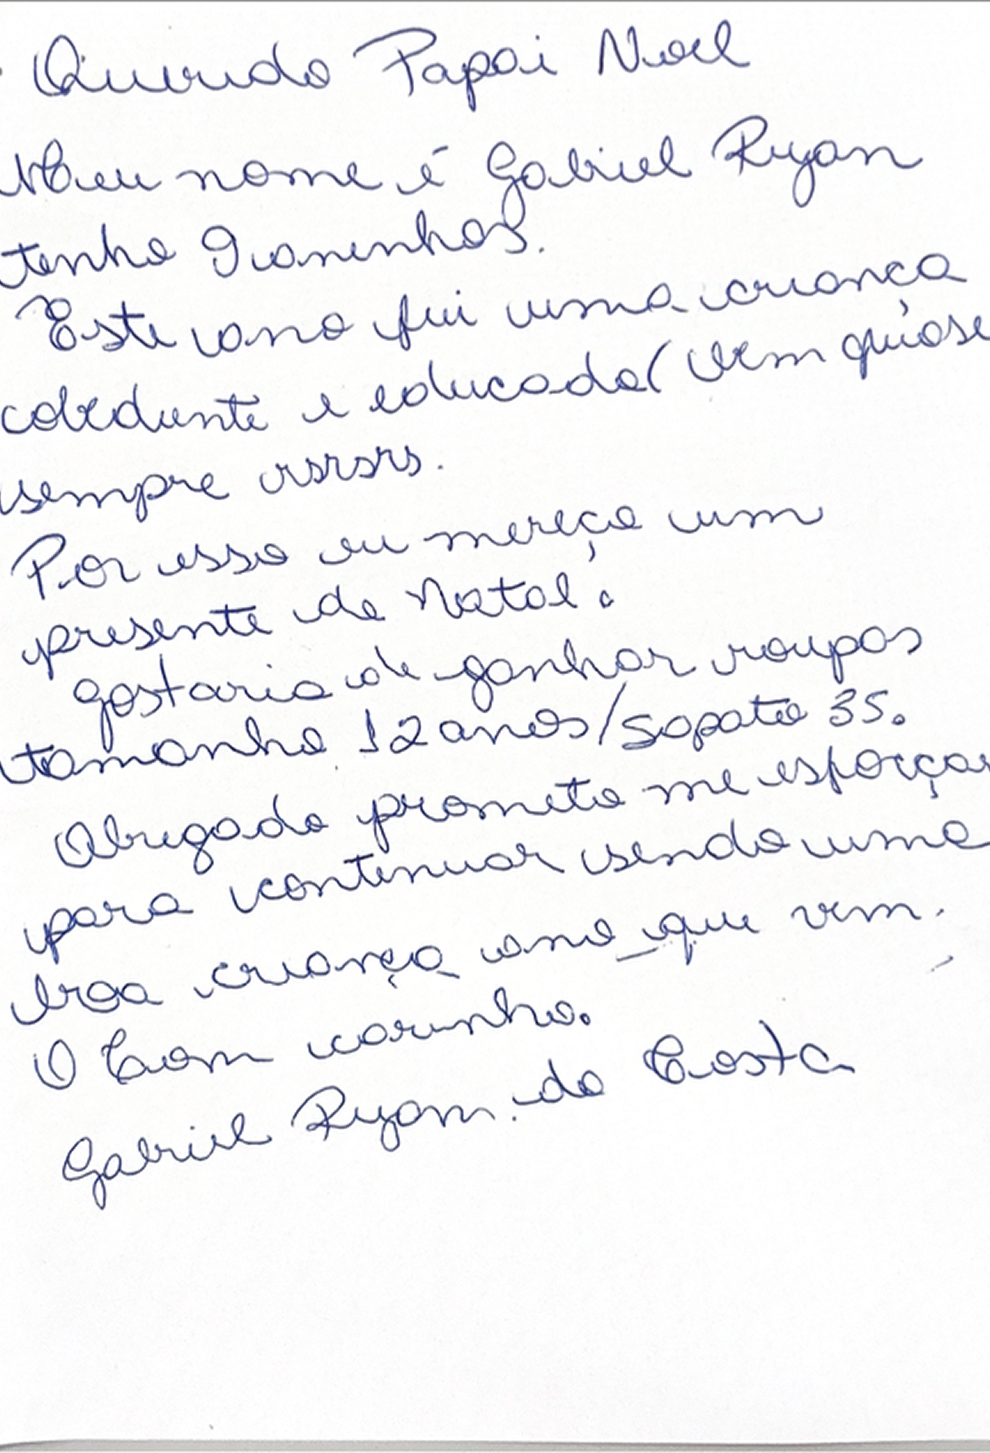 Querido Papai Noel
Meu nome é Gabriel Ryan
tenho 9 aninhos.
Este ano fui uma criança
obediente e educada (nem quase
sempre rsrsrs.
Por isso eu mereço um
presente de Natal.
Gostaria de ganhar roupas
tamanho 12 anos/sapato 35.
Obrigado prometo me esforçar
para continuar sendo uma
boa criança ano_que vem.
O Com carinho.
Gabriel Ryan. da Costa